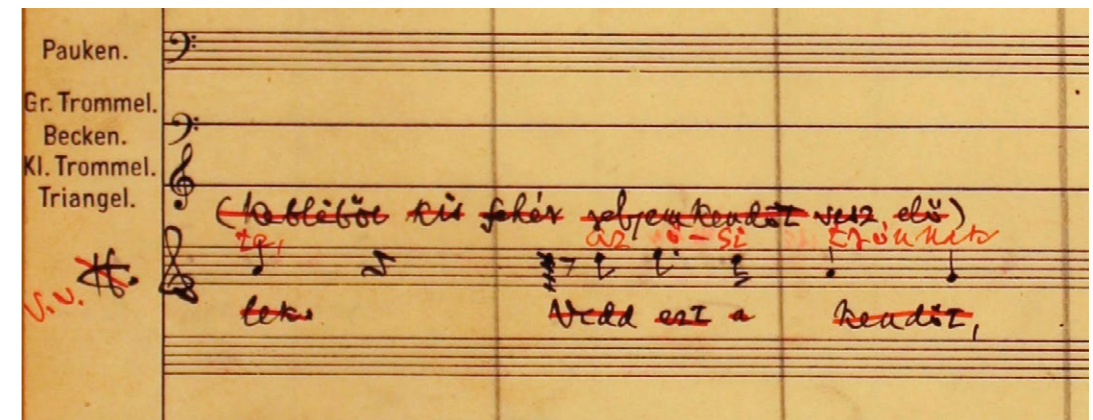 Pauken.
Gr. Trommel.
Becken.
Kl. Trommel.
Triangel.
(kebléböl kis fehér zsebjenkendöt vesz elő)
az ö-si
V.V.
lek. Vedd ezt a kendöt,